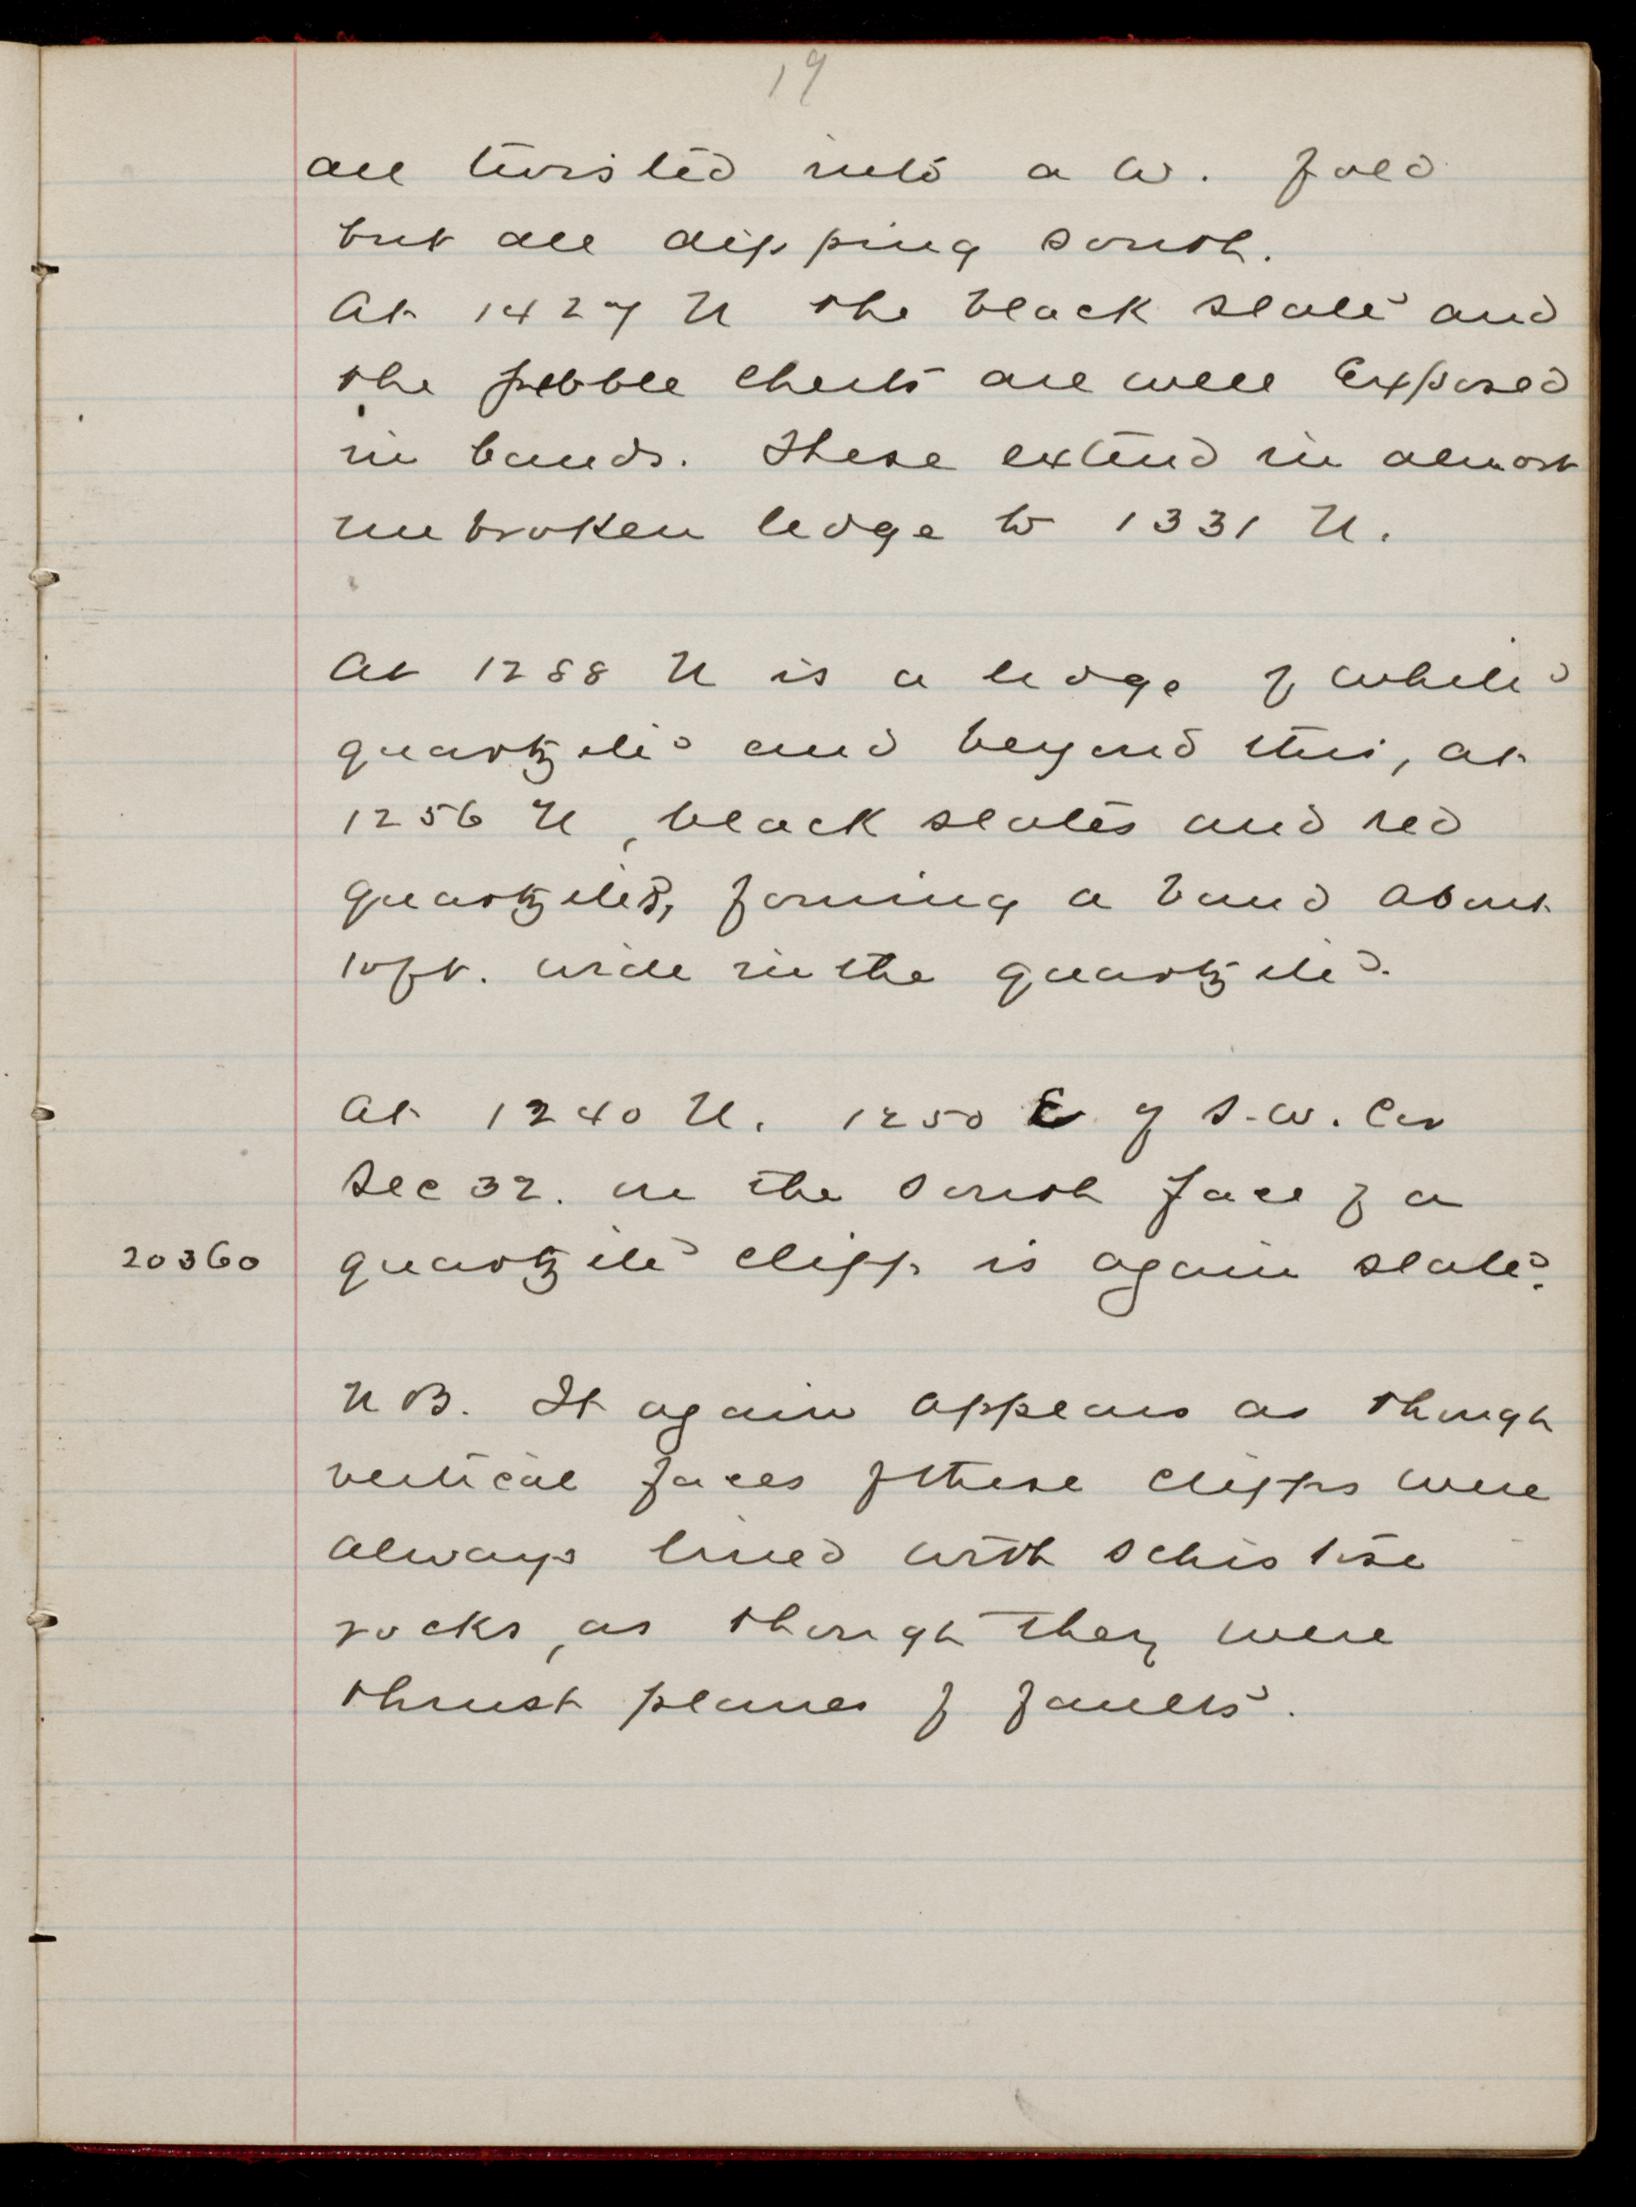 19
all twisted into a W. fold
but all dipping south.
At 1427 N the black slate and
the pebble cherts are well exposed
in bands. These extend in almost
unbroken ledge to 1331 N.
At 1288 N is a ledge of white
quartzite and beyond this, at
1256 N, black slates and red
quartzites, forming a band about
10 ft. wide in the quartzite.
At 1240 N. 1250 E of S.W. Cor
Sec 32. on the south face of a
20360 quartzite cliff is again slate.
NB. It again appears as though
vertical faces of these cliffs were
always lined with schistose
rocks, as though they were
thrust planes of faults.